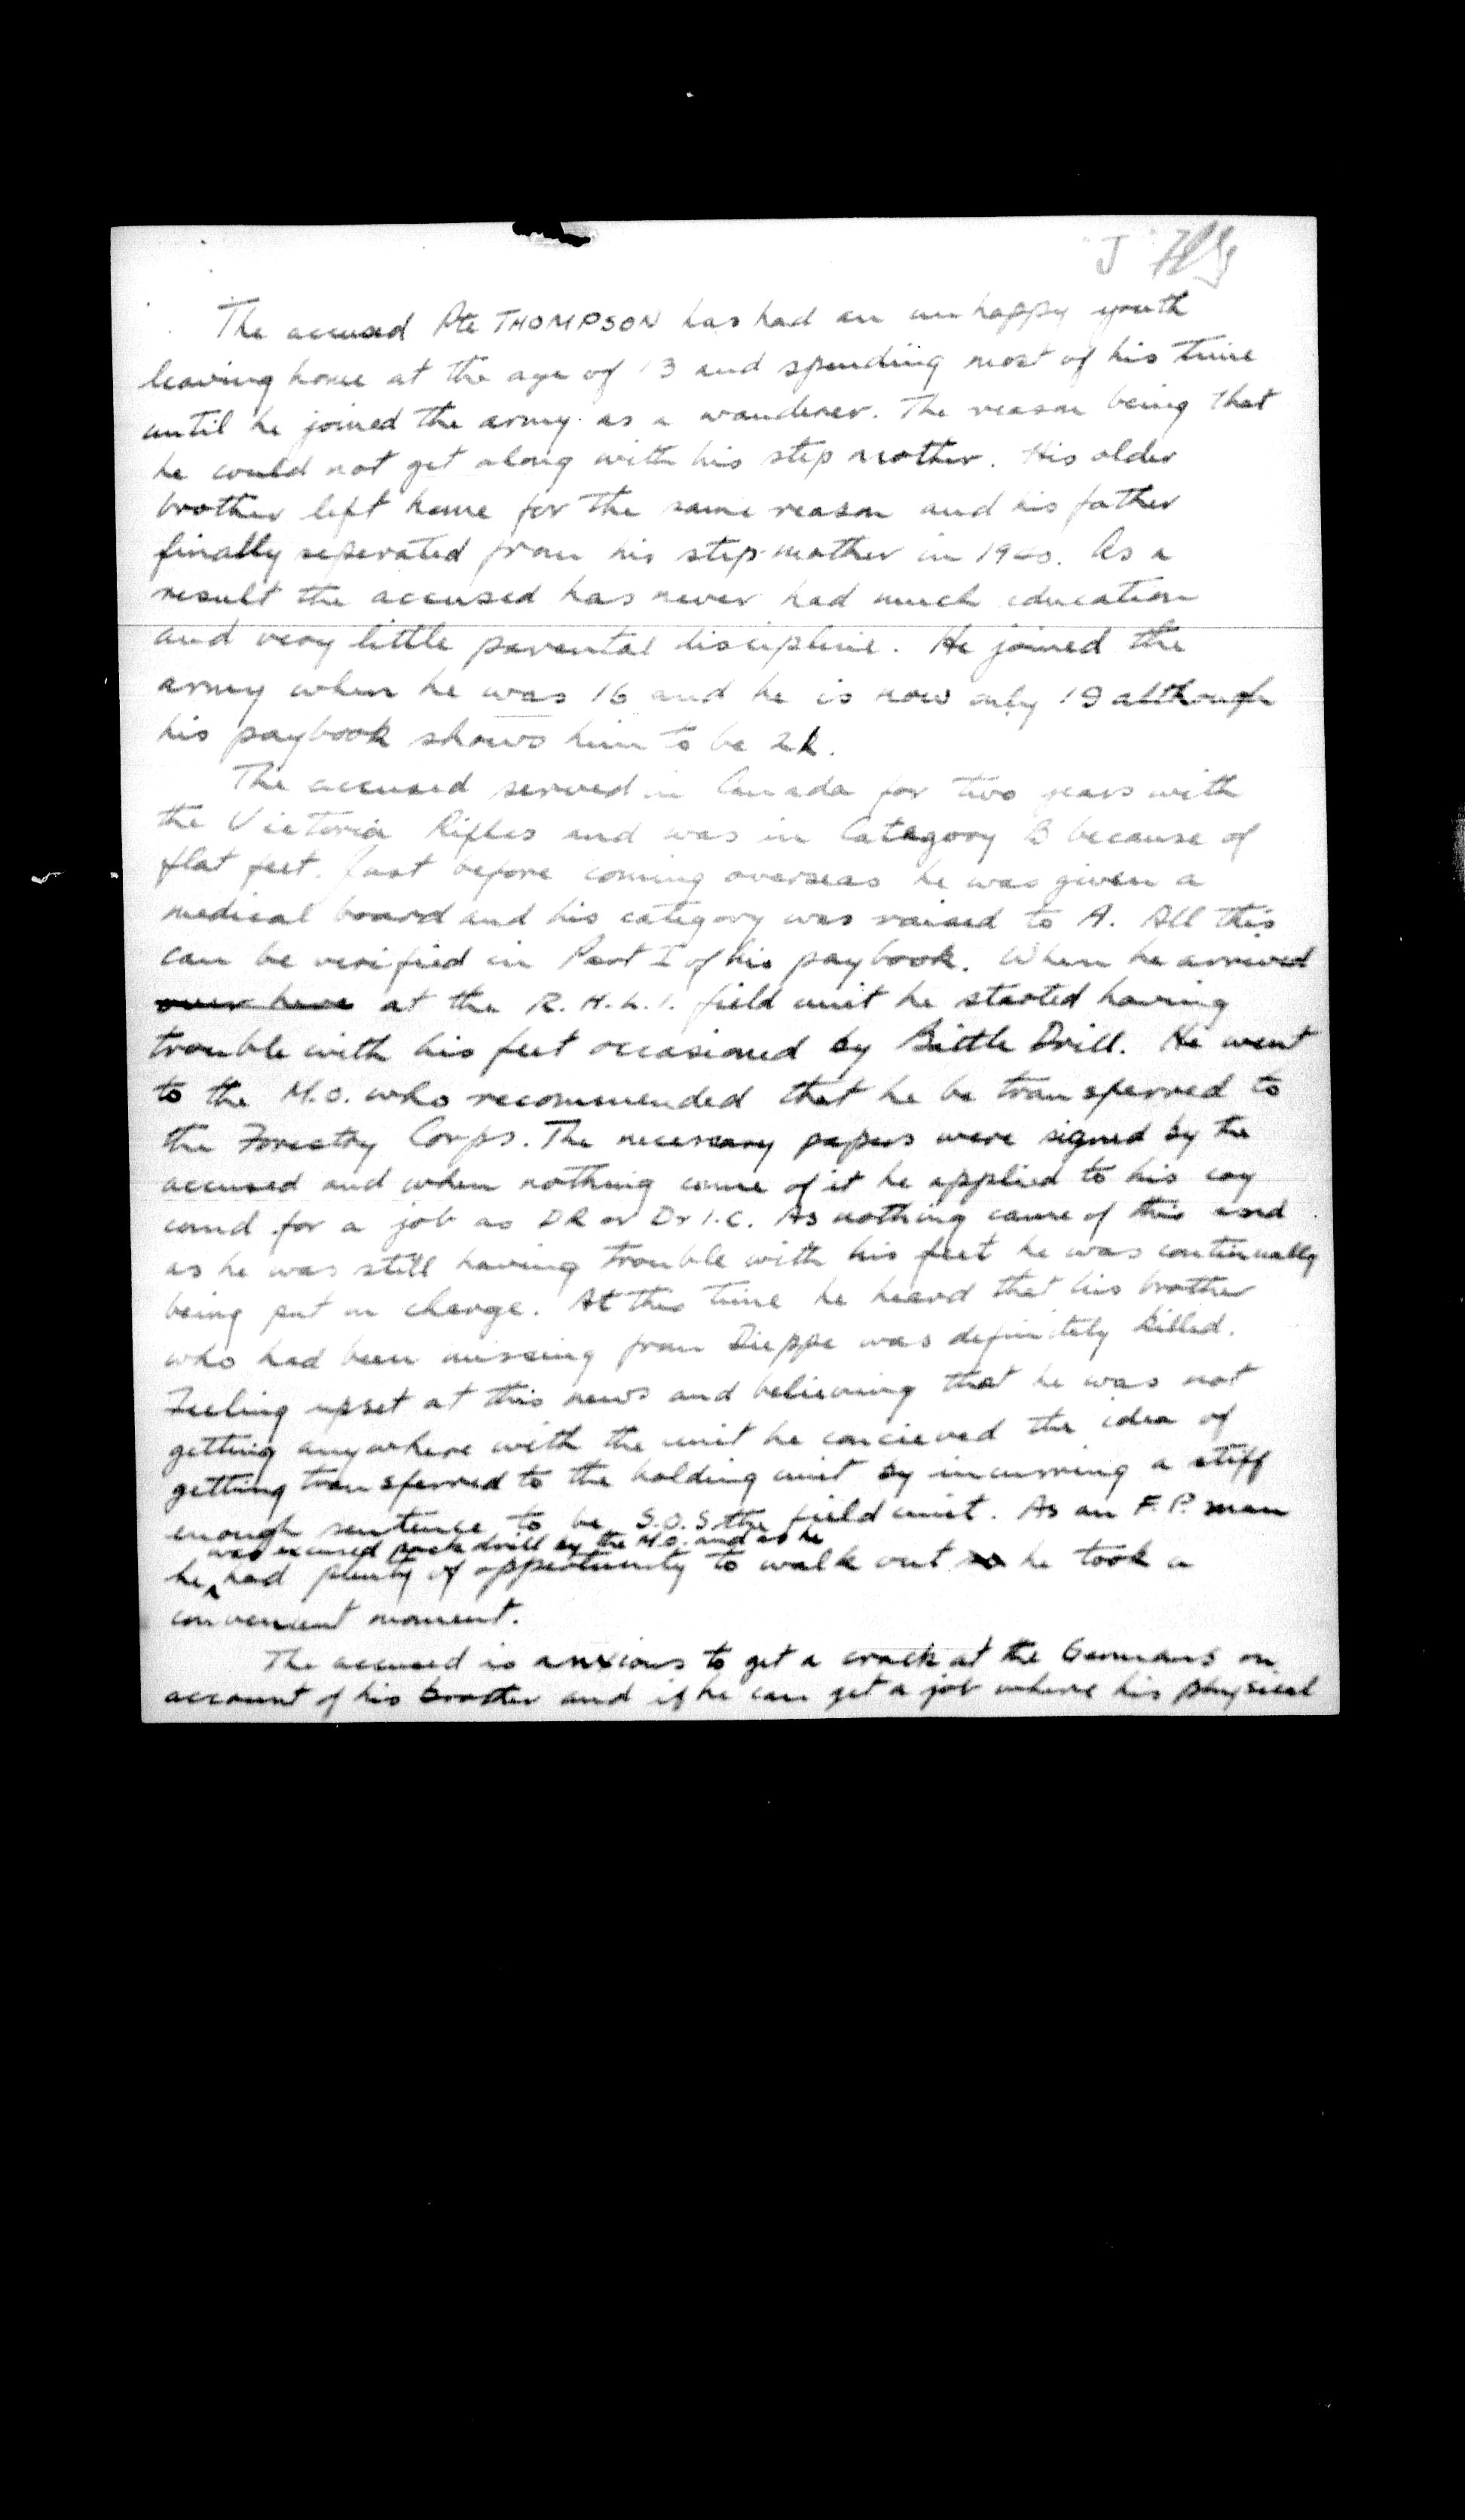 "J"
The accused Pte THOMPSON has had an unhappy youth
leaving home at the age of 13 and spending most of his time
until he joined the army as a wanderer. The reason being that
he could not get along with his step mother. His older
brother left home for the same reason and his father
finally seperated from his step-mother in 1940. As a
result the accused has never had much education
and very little parental discipline. He joined the
army when he was 16 and he is now only 19 although
his paybook shows him to be 21.
The accused served in Canada for two years with
the Victoria Rifles and was in Category B because of
flat feet. Just before coming overseas he was given a
medical board and his category was raised to A. All this
can be verified in Part I of his paybook. When he arrived
over here at the R.H.L.I. field unit he started having
trouble with his feet occasioned by Battle Drill. He went
to the M.O. who recommended that he be transferred to
the Forestry Corps. The necessary papers were signed by the
accused and when nothing came of it he applied to his coy
comd for a job as DR or Dr I.C. As nothing came of this and
as he was still having trouble with his feet he was continually
being put on charge. At this time he heard that his brother
who had been missing from Dieppe was definitely killed.
Feeling upset at this news and believing that he was not
getting anywhere with the unit he concieved the idea of
getting transferred to the holding unit by incurring a stiff
enough sentence to be S.O.S the field unit. As an F.P. man
was excused pack drill by the M.O. and as he
he had plenty of opportunity to walk out so he took a
convenient moment.
The accused is anxious to get a crack at the Germans on
account of his brother and if he can get a job where his physical